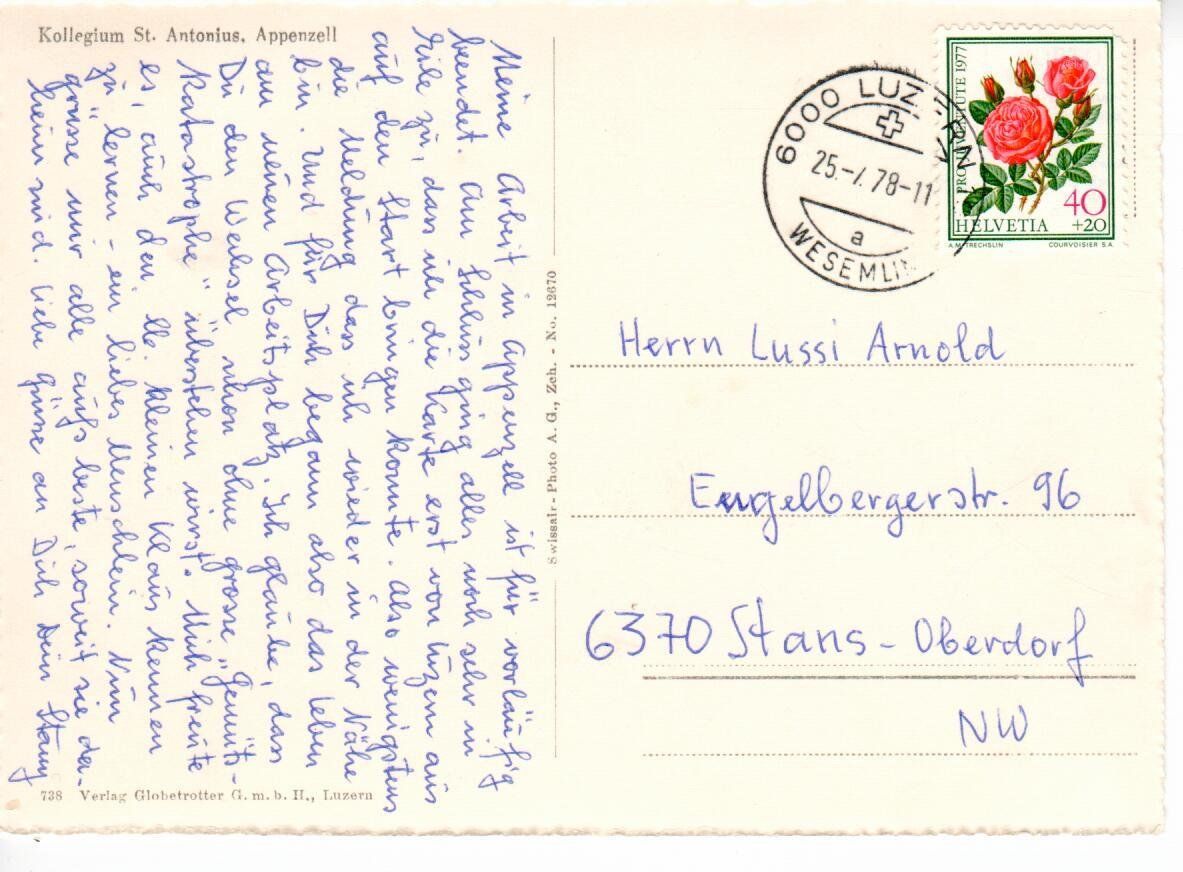 Kollegium St. Antonius, Appenzell
Meine Arbeit in Appenzell ist für vorläufig
beendet. Am Schluss ging alles noch sehr in
Eile zu, dass ich die Karte erst von Luzern aus
auf den Start bringen konnte. Also wenigstens
die Meldung dass ich wieder in der Nähe
bin. Und für Dich begann also das Leben
am neuen Arbeitsplatz. Ich glaube, dass
Du den Wechsel schon ohne grosse "Gemüts-
Katastrophe" überstehen wirst. Mich freute
es, auch den lb. kleinen Klaus kennen
zu lernen - ein liebes Menschlein. Nun
grüsse mir alle aufs beste, soweit sie da-
heim sind. Liebe Grüsse an Dich Dein Stany
738 Verlag Globetrotter G. m. b. H., Luzern
Swissair - Photo A. G., Zch. - No. 12670
6000 LUZERN
25.-7.78-11
a
WESEMLIN
PRO JUVENTUTE 1977
40
+20
HELVETIA
A.M. TRECHSLIN COURVOISIER S.A.
Herrn Lussi Arnold
Engelbergerstr. 96
6370 Stans - Oberdorf
NW